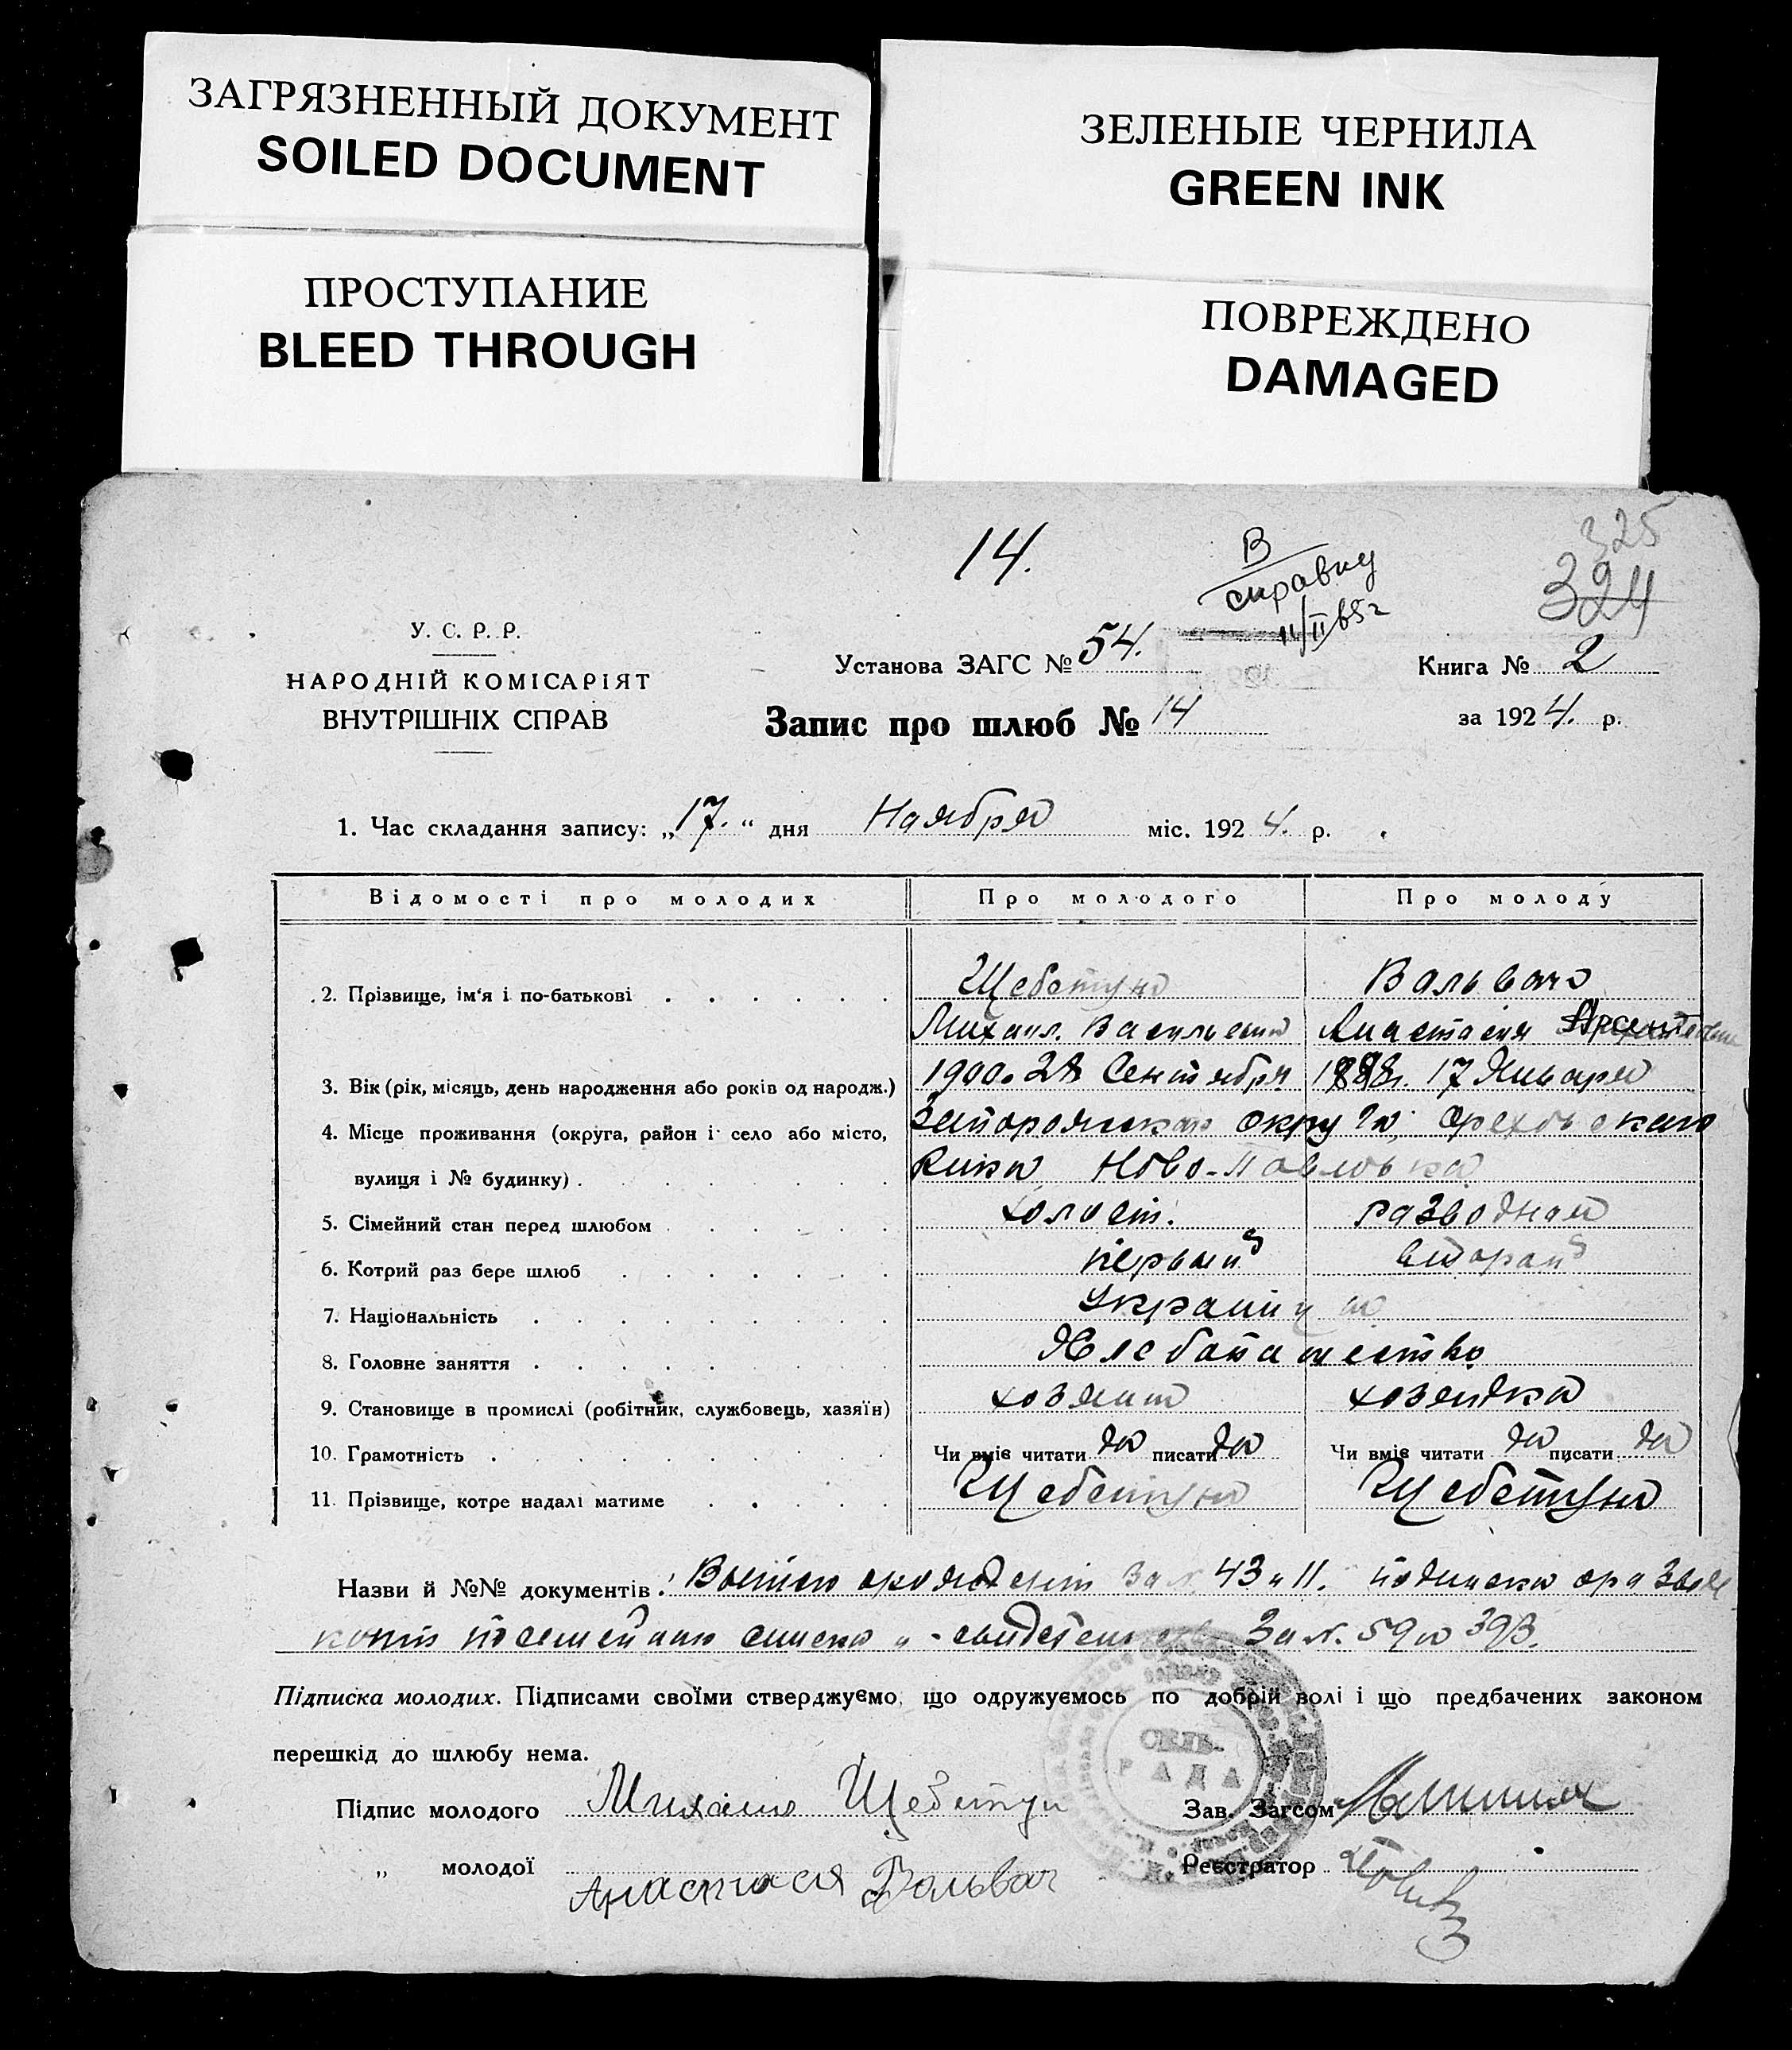 ЗАГРЯЗНЕННЫЙ ДОКУМЕНТ
SOILED DOCUMENT
ЗЕЛЕНЫЕ ЧЕРНИЛА
GREEN INK
ПРОСТУПАНИЕ
BLEED THROUGH
ПОВРЕЖДЕНО
DAMAGED
14.
В справку
11/II 65 г
325
324
У. С. Р. Р.
НАРОДНІЙ КОМІСАРІЯТ
ВНУТРІШНІХ СПРАВ
Установа ЗАГС № 54.
Книга № 2
Запис про шлюб № 14
за 1924. р.
1. Час складання запису: „17.“ дня Ноября міс. 1924. р.
Відомості про молодих Про молодого Про молоду
2. Прізвище, ім'я і по-батькові Щебетун Вальвач
Михаил Васильевич Анастасия
3. Вік (рік, місяць, день народження або років од народж.) 1900. 28 Сентября 1898г. 17 Января
4. Місце проживання (округа, район і село або місто, Запорожская округа, Ореховскаго
вулиця і № будинку) Ново-Павловка
5. Сімейний стан перед шлюбом холост. разводная
6. Котрий раз бере шлюб первый второй
7. Національність Украинцы
8. Головне заняття Хлебопашество
9. Становище в промислі (робітник, службовець, хазяїн) хозяин хозяйка
10. Грамотність Чи вміє читати да писати да Чи вміє читати да писати да
11. Прізвище, котре надалі матиме Щебетун Щебетун
Назви й №№ документів: за № 43 и 11.
за №. 59 и 393.
Підписка молодих. Підписами своїми стверджуємо, що одружуємось по добрій волі і що предбачених законом
перешкід до шлюбу нема.
СІЛЬ-
РАДА
Підпис молодого Михаил Щебетун Зав. Загсом
„ молодої Анастасія Вальвач Реєстратор